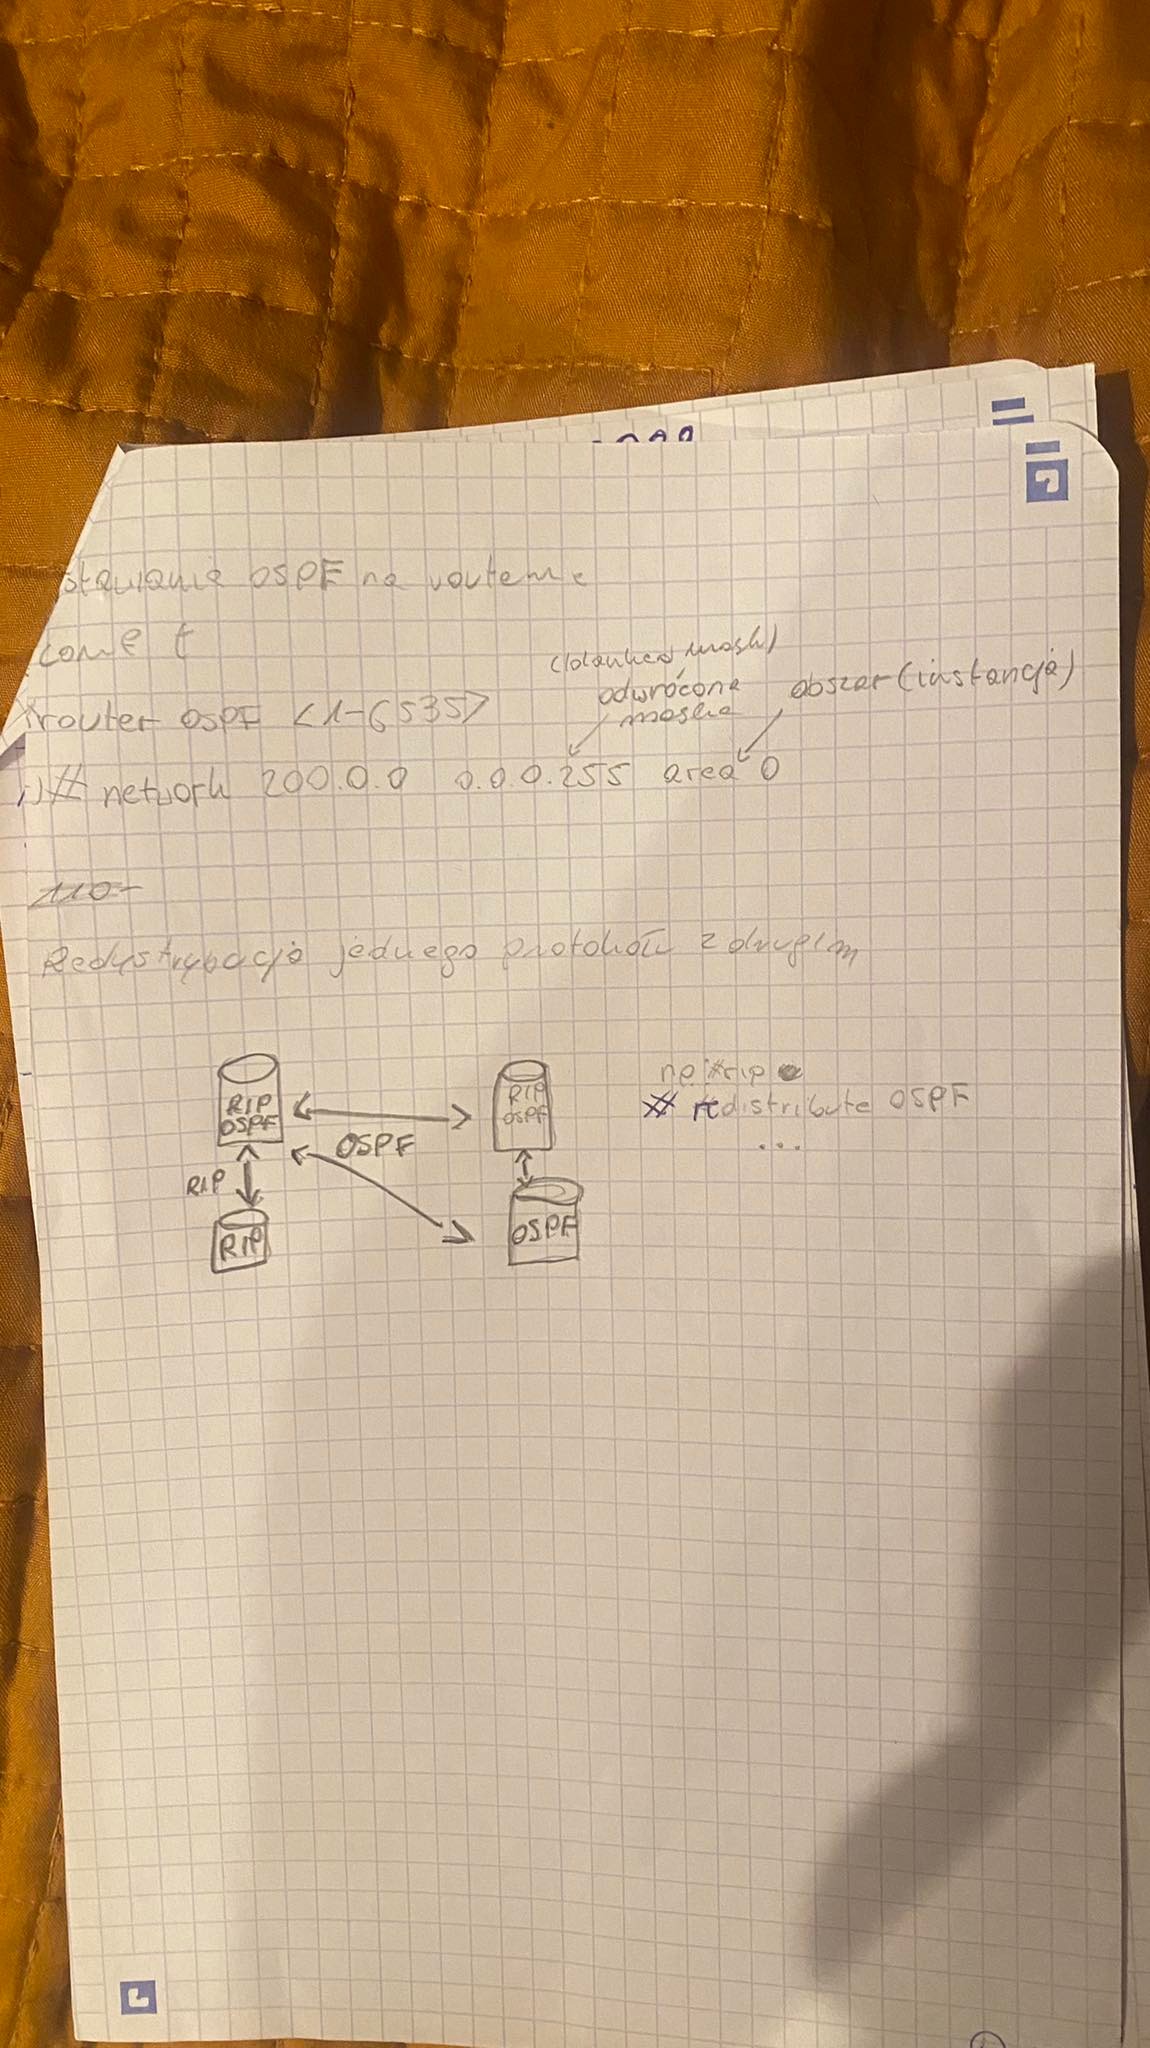 stawianie OSPF na routerze
conf t
router OSPF <1-6535>
(dzika mask)
odwrócona
maska
obszar (instancja)
# network 200.0.0 0.0.0.255 area 0
110-
Redystrybucja jednego protokołu z drugim
RIP
OSPF
OSPF
RIP
RIP
RIP
OSPF
OSPF
np #rip
# redistribute OSPF
...